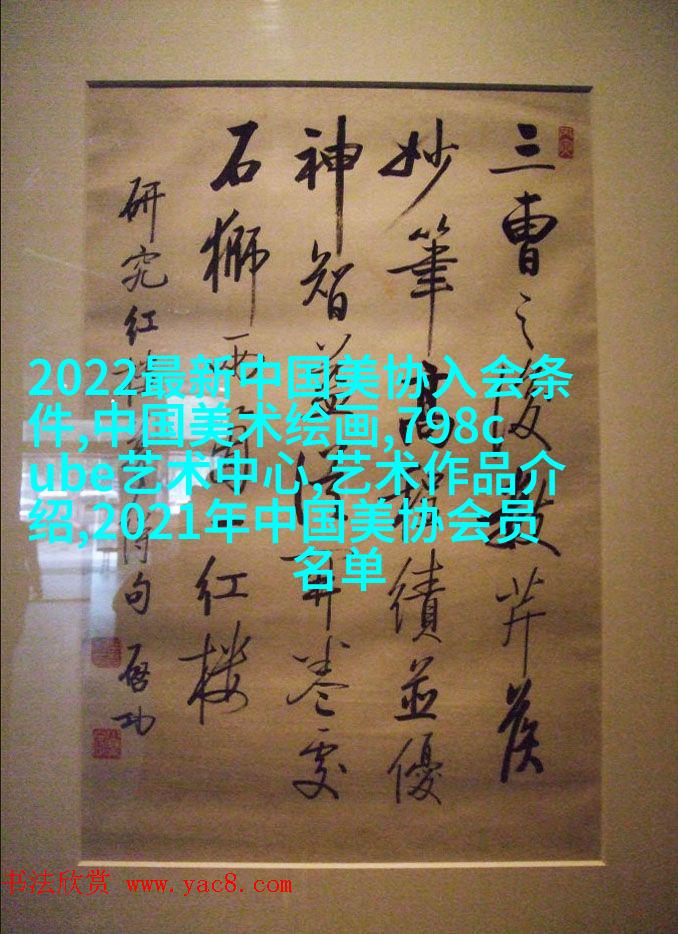 三曹之後数芹侯
妙筆高程績並優
神智益從開卷處
石獅兩 红楼
研究红楼夢 句 啓功
2022最新中国美协入会条
件,中国美术绘画,798c
ube艺术中心,艺术作品介
绍,2021年中国美协会员
名单
书法欣赏 www.yac8.com